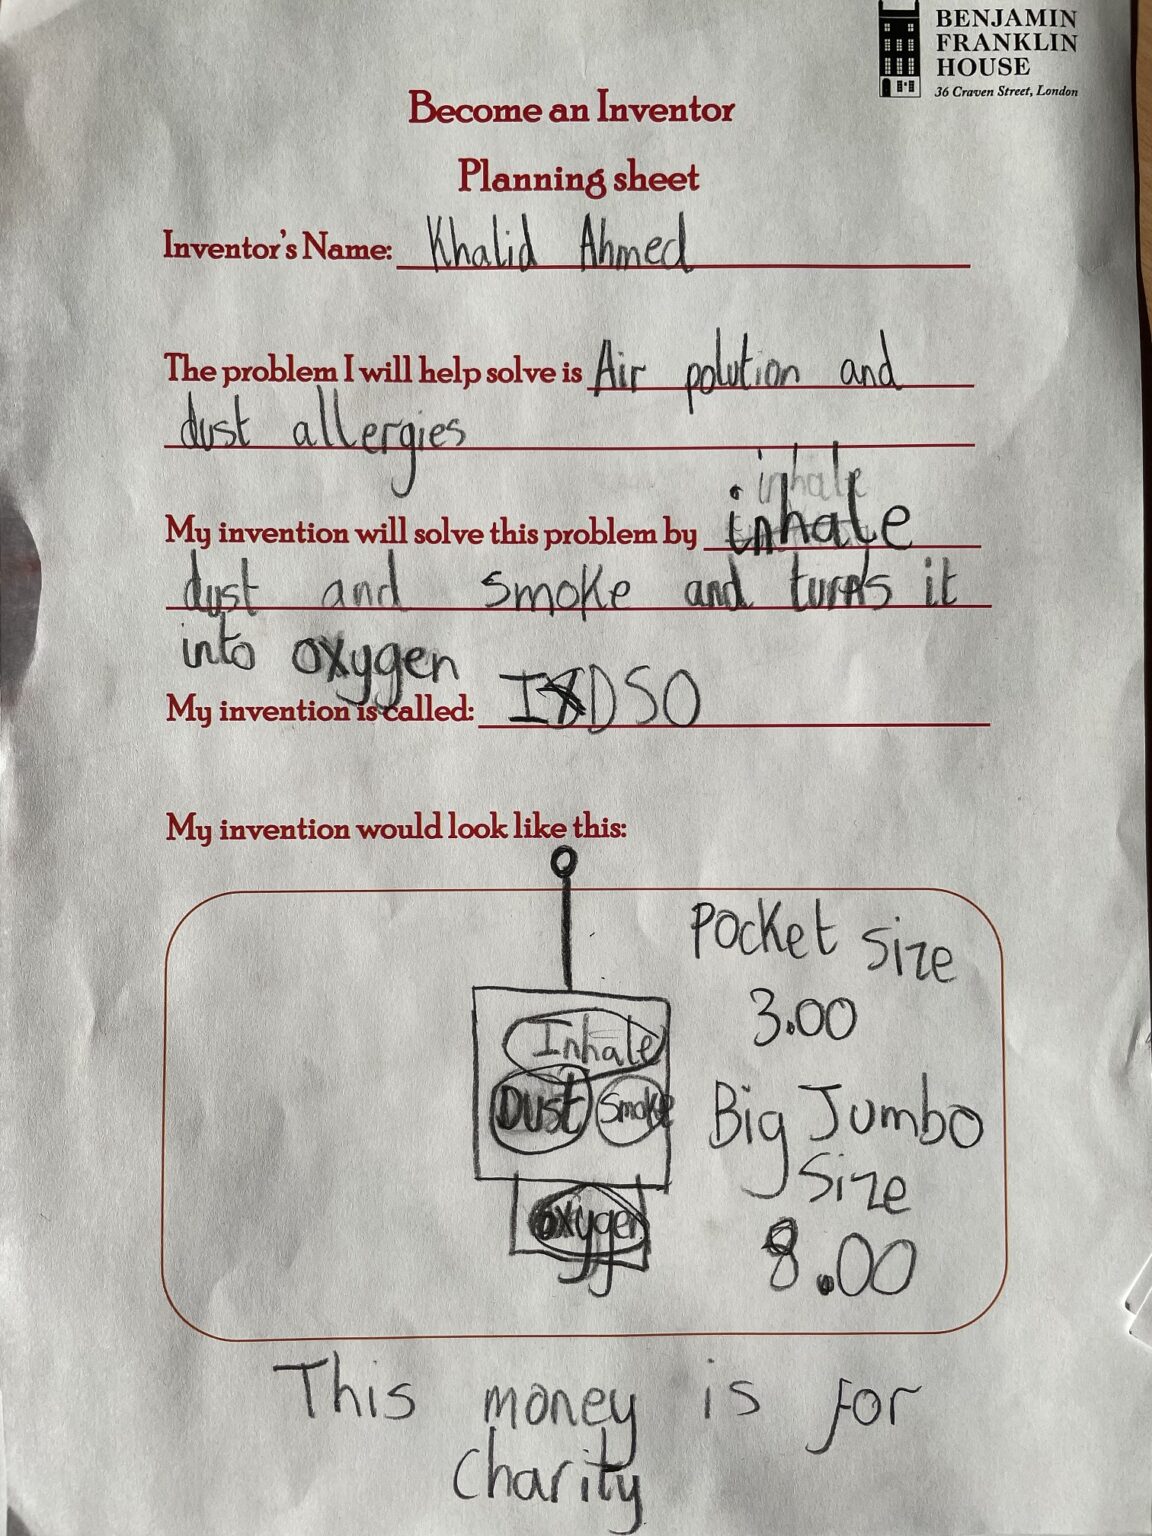 BENJAMIN
FRANKLIN
HOUSE
36 Craven Street, London
Become an Inventor
Planning sheet
Inventor's Name: Khalid Ahmed
The problem I will help solve is Air polution and
dust allergies
inhale
My invention will solve this problem by inhale
dust and smoke and turns it
into oxygen
My invention is called: IDSO
My invention would look like this:
Pocket Size
3.00
Inhale
Dust Smoke
Big Jumbo
Size
oxygen
8.00
This money is for
charity